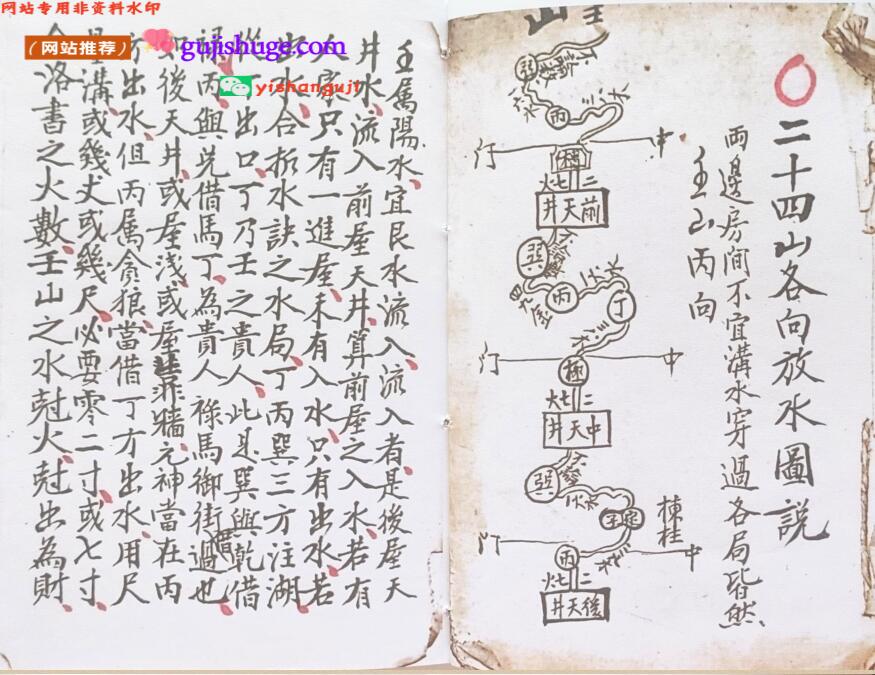 网站专用非资料水印
（网站推荐）
gujishuge.com
yishanguji
二十四山各向放水圖説
兩邊房間不宜溝水穿過各局皆然
壬山丙向
壬
山
巽
丙
中
门
極
火七
二
前天井
巽
丙
丁
门
中
極
火七
二
中天井
巽
棟柱
门
中
丙
火七
二
後天井
壬屬陽水宜艮水流入流入者是後屋天
井水流入前屋天井算前屋之入水若有
人家只有一進屋未有入水只有出水若
出水合拆水訣之水局丁丙巽三方注湖
從丁出口丁乃壬之貴人此是巽與乾借
祿丙與兑借馬丁為貴人祿馬御街過也
借
如後天井或屋浅或屋誹牆元神當在丙
方出水但丙属貪狼當借丁方出水用尺
量溝或幾丈或幾尺必要零二寸或七寸
合洛書之火數壬山之水尅火尅出為財